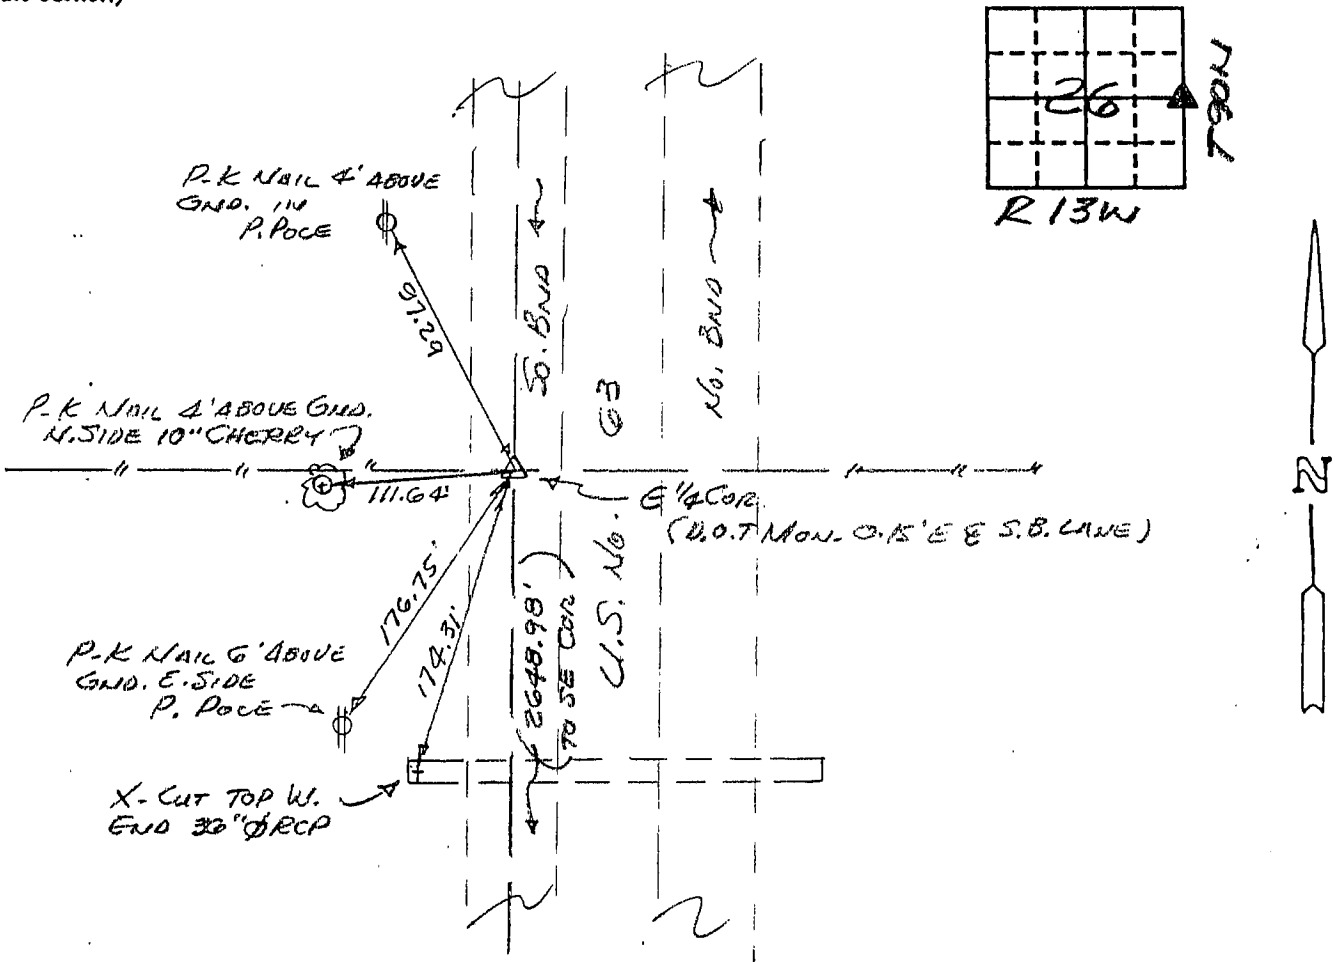 26
T90N
R 13W
P-K NAIL 4' ABOVE
GND. IN
P. POLE
97.29
SO. BND
NO. BND
P-K NAIL 4' ABOVE GND.
N. SIDE 10" CHERRY
111.64'
E 1/4 COR
(D.O.T MON. 0.15' E ℄ S.B. LANE)
U.S. NO. 63
176.75'
174.31'
2648.98'
TO SE COR
P-K NAIL 6' ABOVE
GND. E. SIDE
P. POLE
X-CUT TOP W.
END 36"Ø RCP
N